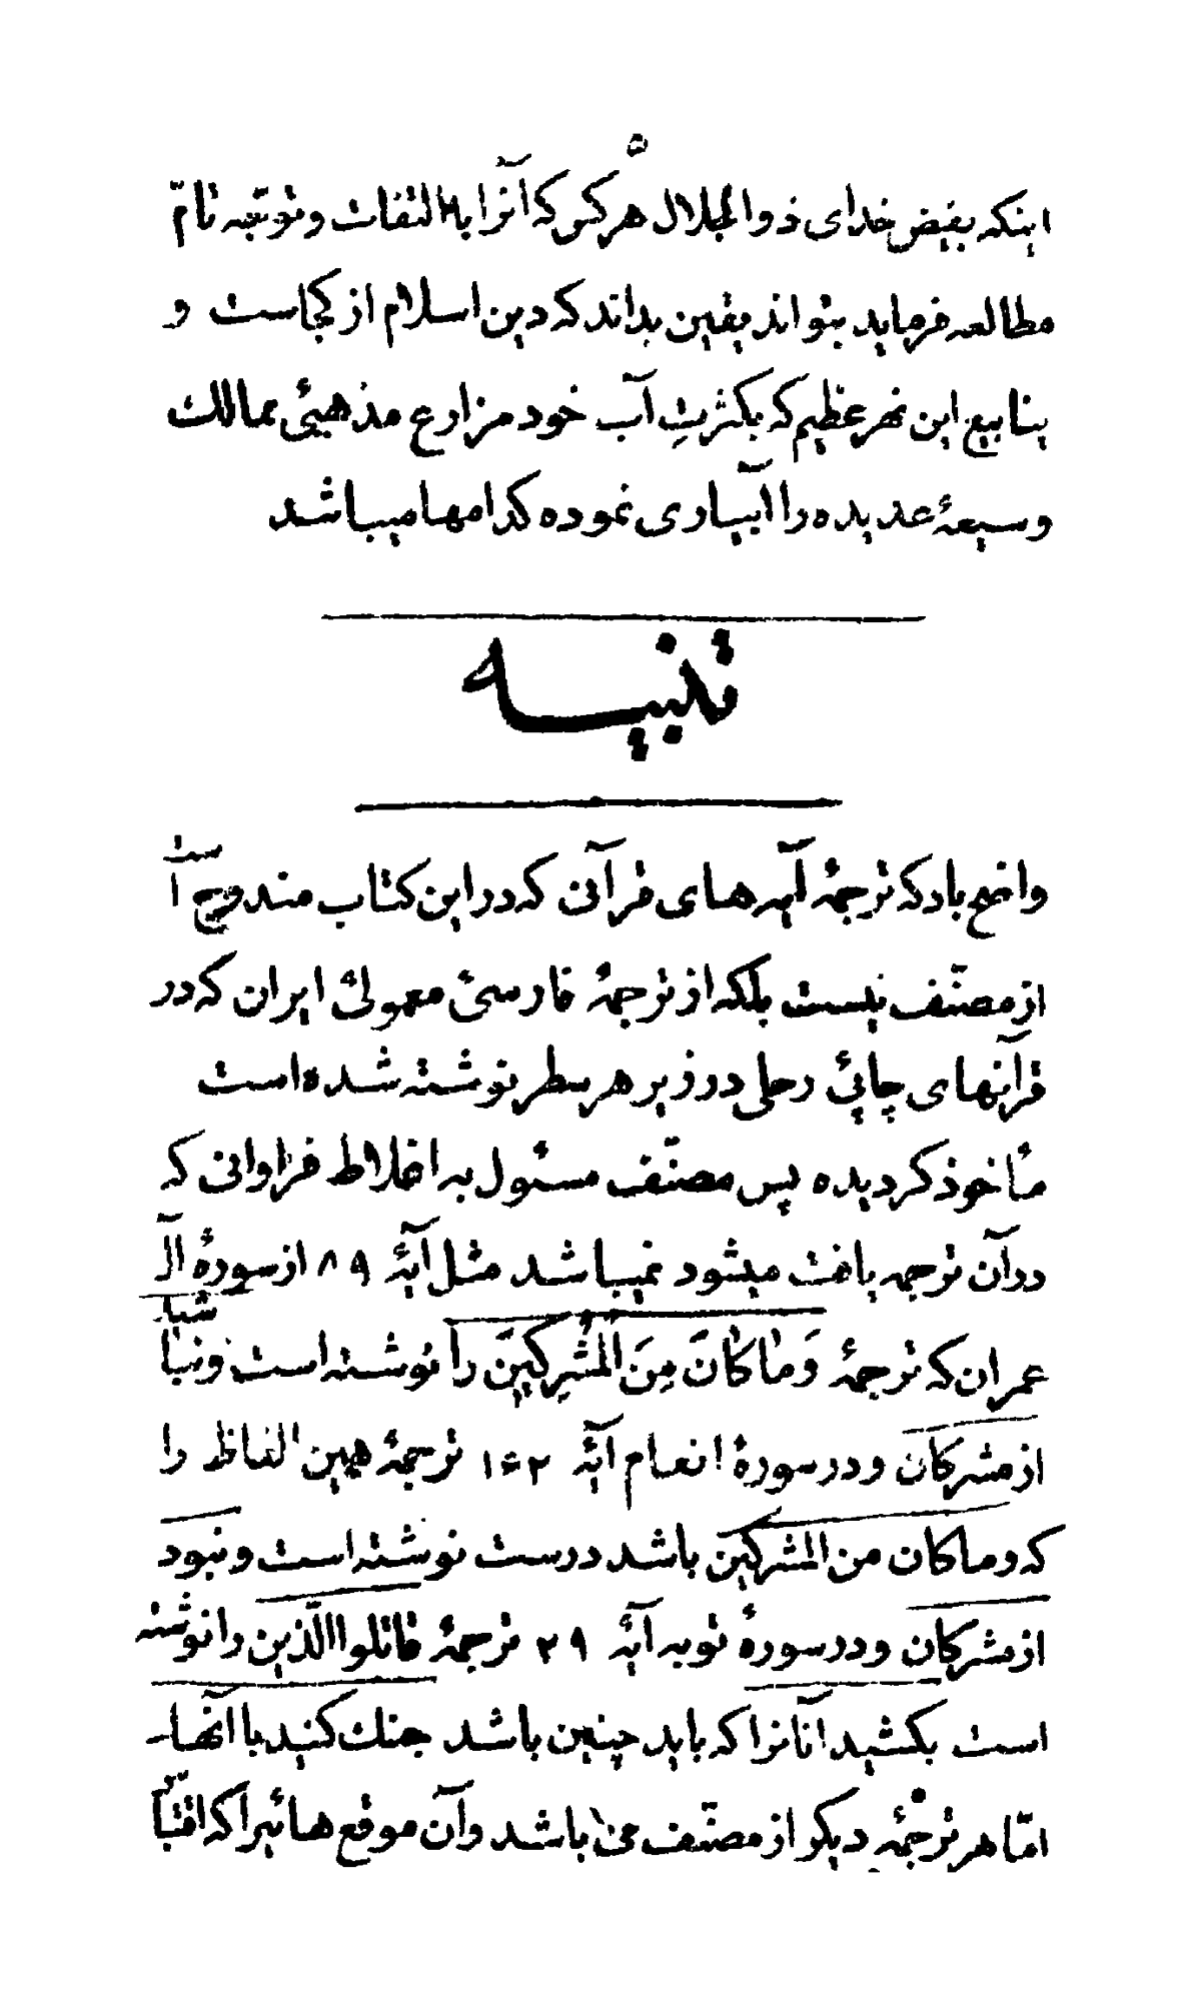 ۵
اینکه بفیض خدای ذوالجلال هر کس که آنرا با التفات و توجّه تامّ
مطالعه فرماید بتواند یقین بداند که دین اسلام از کجاست و
ینابیع این نهر عظیم که بکثرتِ آب خود مزارع مذهبیٔ ممالک
وسیعهٔ عدیده را آبیاری نموده کدامها میباشد
تنبیه
واضح باد که ترجمهٔ آیه‌های قرآنی که در این کتاب مندرج است
از مصنّف نیست بلکه از ترجمهٔ فارسیٔ معمولیٔ ایران که در
قرآنهای چاپیٔ رحلی در زیر هر سطر نوشته شده است
مأخوذ کردیده پس مصنّف مسئول به اغلاط فراوانی که
در آن ترجمه یافت میشود نمیباشد مثل آیهٔ ۸۹ از سورهٔ آل
عمران که ترجمهٔ وَمٰا کٰانَ مِنَ الْمُشْرِکِینَ را نوشته است و نباشید
از مشرکان و در سورهٔ انعام آیهٔ ۱۶۲ ترجمهٔ همین الفاظ را
که وما کان من المشرکین باشد درست نوشته است و نبود
از مشرکان و در سورهٔ توبه آیهٔ ۲۹ ترجمهٔ قاتلوا الّذین را نوشته
است بکشید آنانرا که باید چنین باشد جنك کنید با آنها
امّا هر ترجمهٔ دیکر از مصنّف می باشد و آن موقع هائیرا که اقتبا